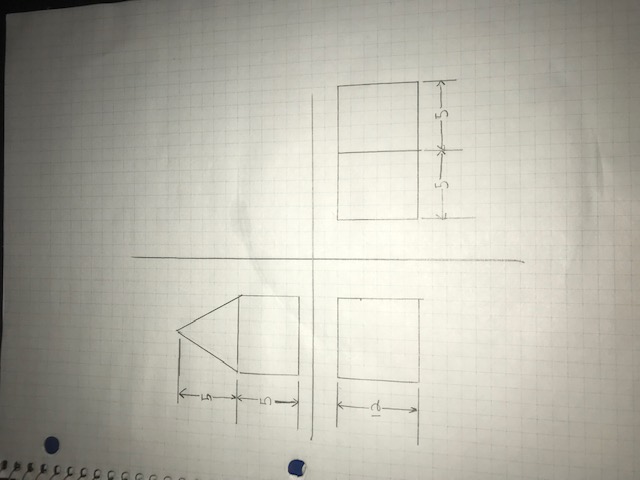 5
5
12
5 5